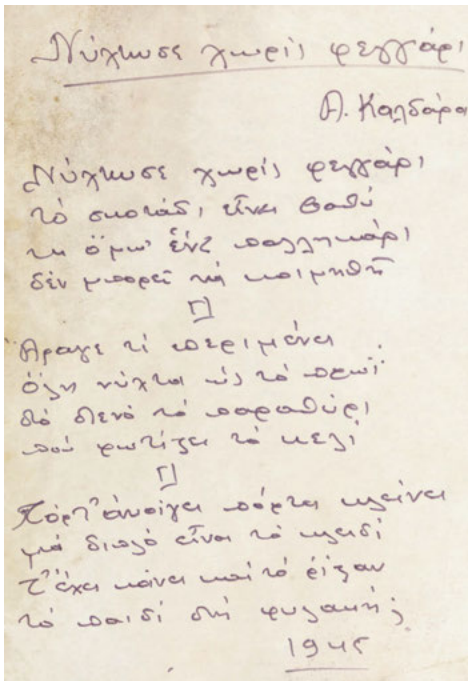 Νύχτωσε χωρίς φεγγάρι
Α. Καλδάρα
Νύχτωσε χωρίς φεγγάρι
τό σκοτάδι εἶναι βαθύ
κι ὅμως ἕνα παλληκάρι
δέν μπορεῖ νά κοιμηθῆ
Ἄραγε τί περιμένει
ὅλη νύχτα ὡς τό πρωΐ
στό στενό τό παραθύρι
πού φωτίζει τό κελί
Πόρτ' ἀνοίγει πόρτα κλείνει
μά διπλό εἶναι τό κλειδί
τ' ἔχει κάνει καί τό ρίξαν
τό παιδί στή φυλακή;
1945